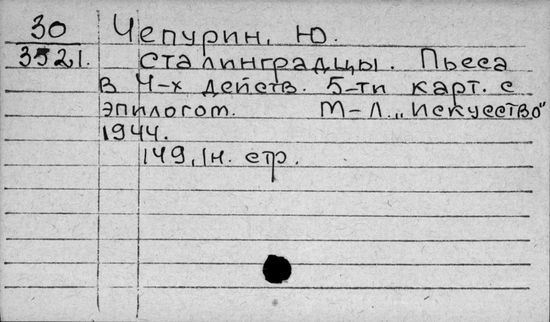 30 Чепурин, Ю.
3521. Сталинградцы. Пьеса
в 4-х действ. 5-ти карт. с
эпилогом. М-Л. „Искусство"
1944.
149, 1н. стр.